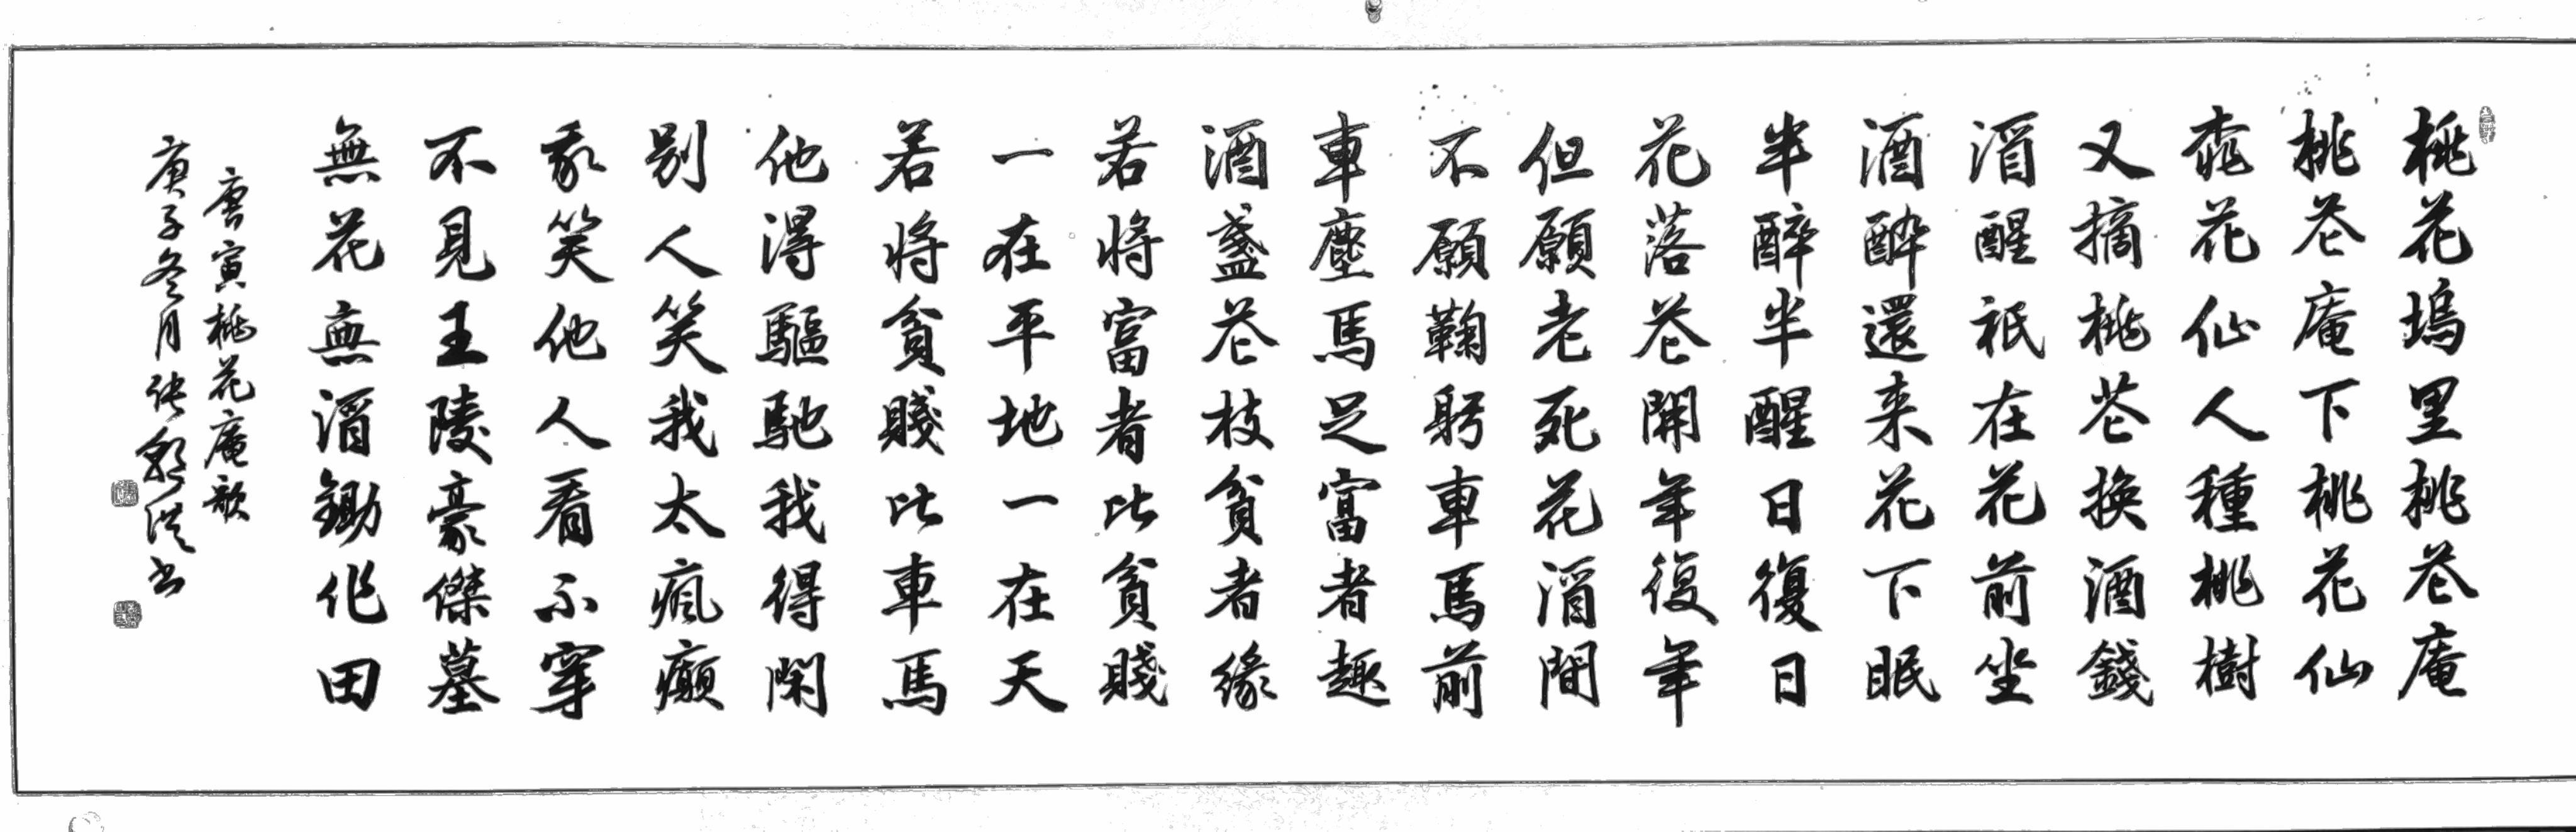 桃花塢里桃花庵
桃花庵下桃花仙
桃花仙人種桃樹
又摘桃花換酒錢
酒醒祇在花前坐
酒醉還来花下眠
半醉半醒日復日
花落花開年復年
但願老死花酒間
不願鞠躬車馬前
車塵馬足富者趣
酒盞花枝貧者緣
若將富者比貧賤
一在平地一在天
若將貧賤比車馬
他得驅馳我得閑
別人笑我太瘋癲
我笑他人看不穿
不見王陵豪傑墓
無花無酒鋤作田
唐寅桃花庵歌
庚子冬月 書